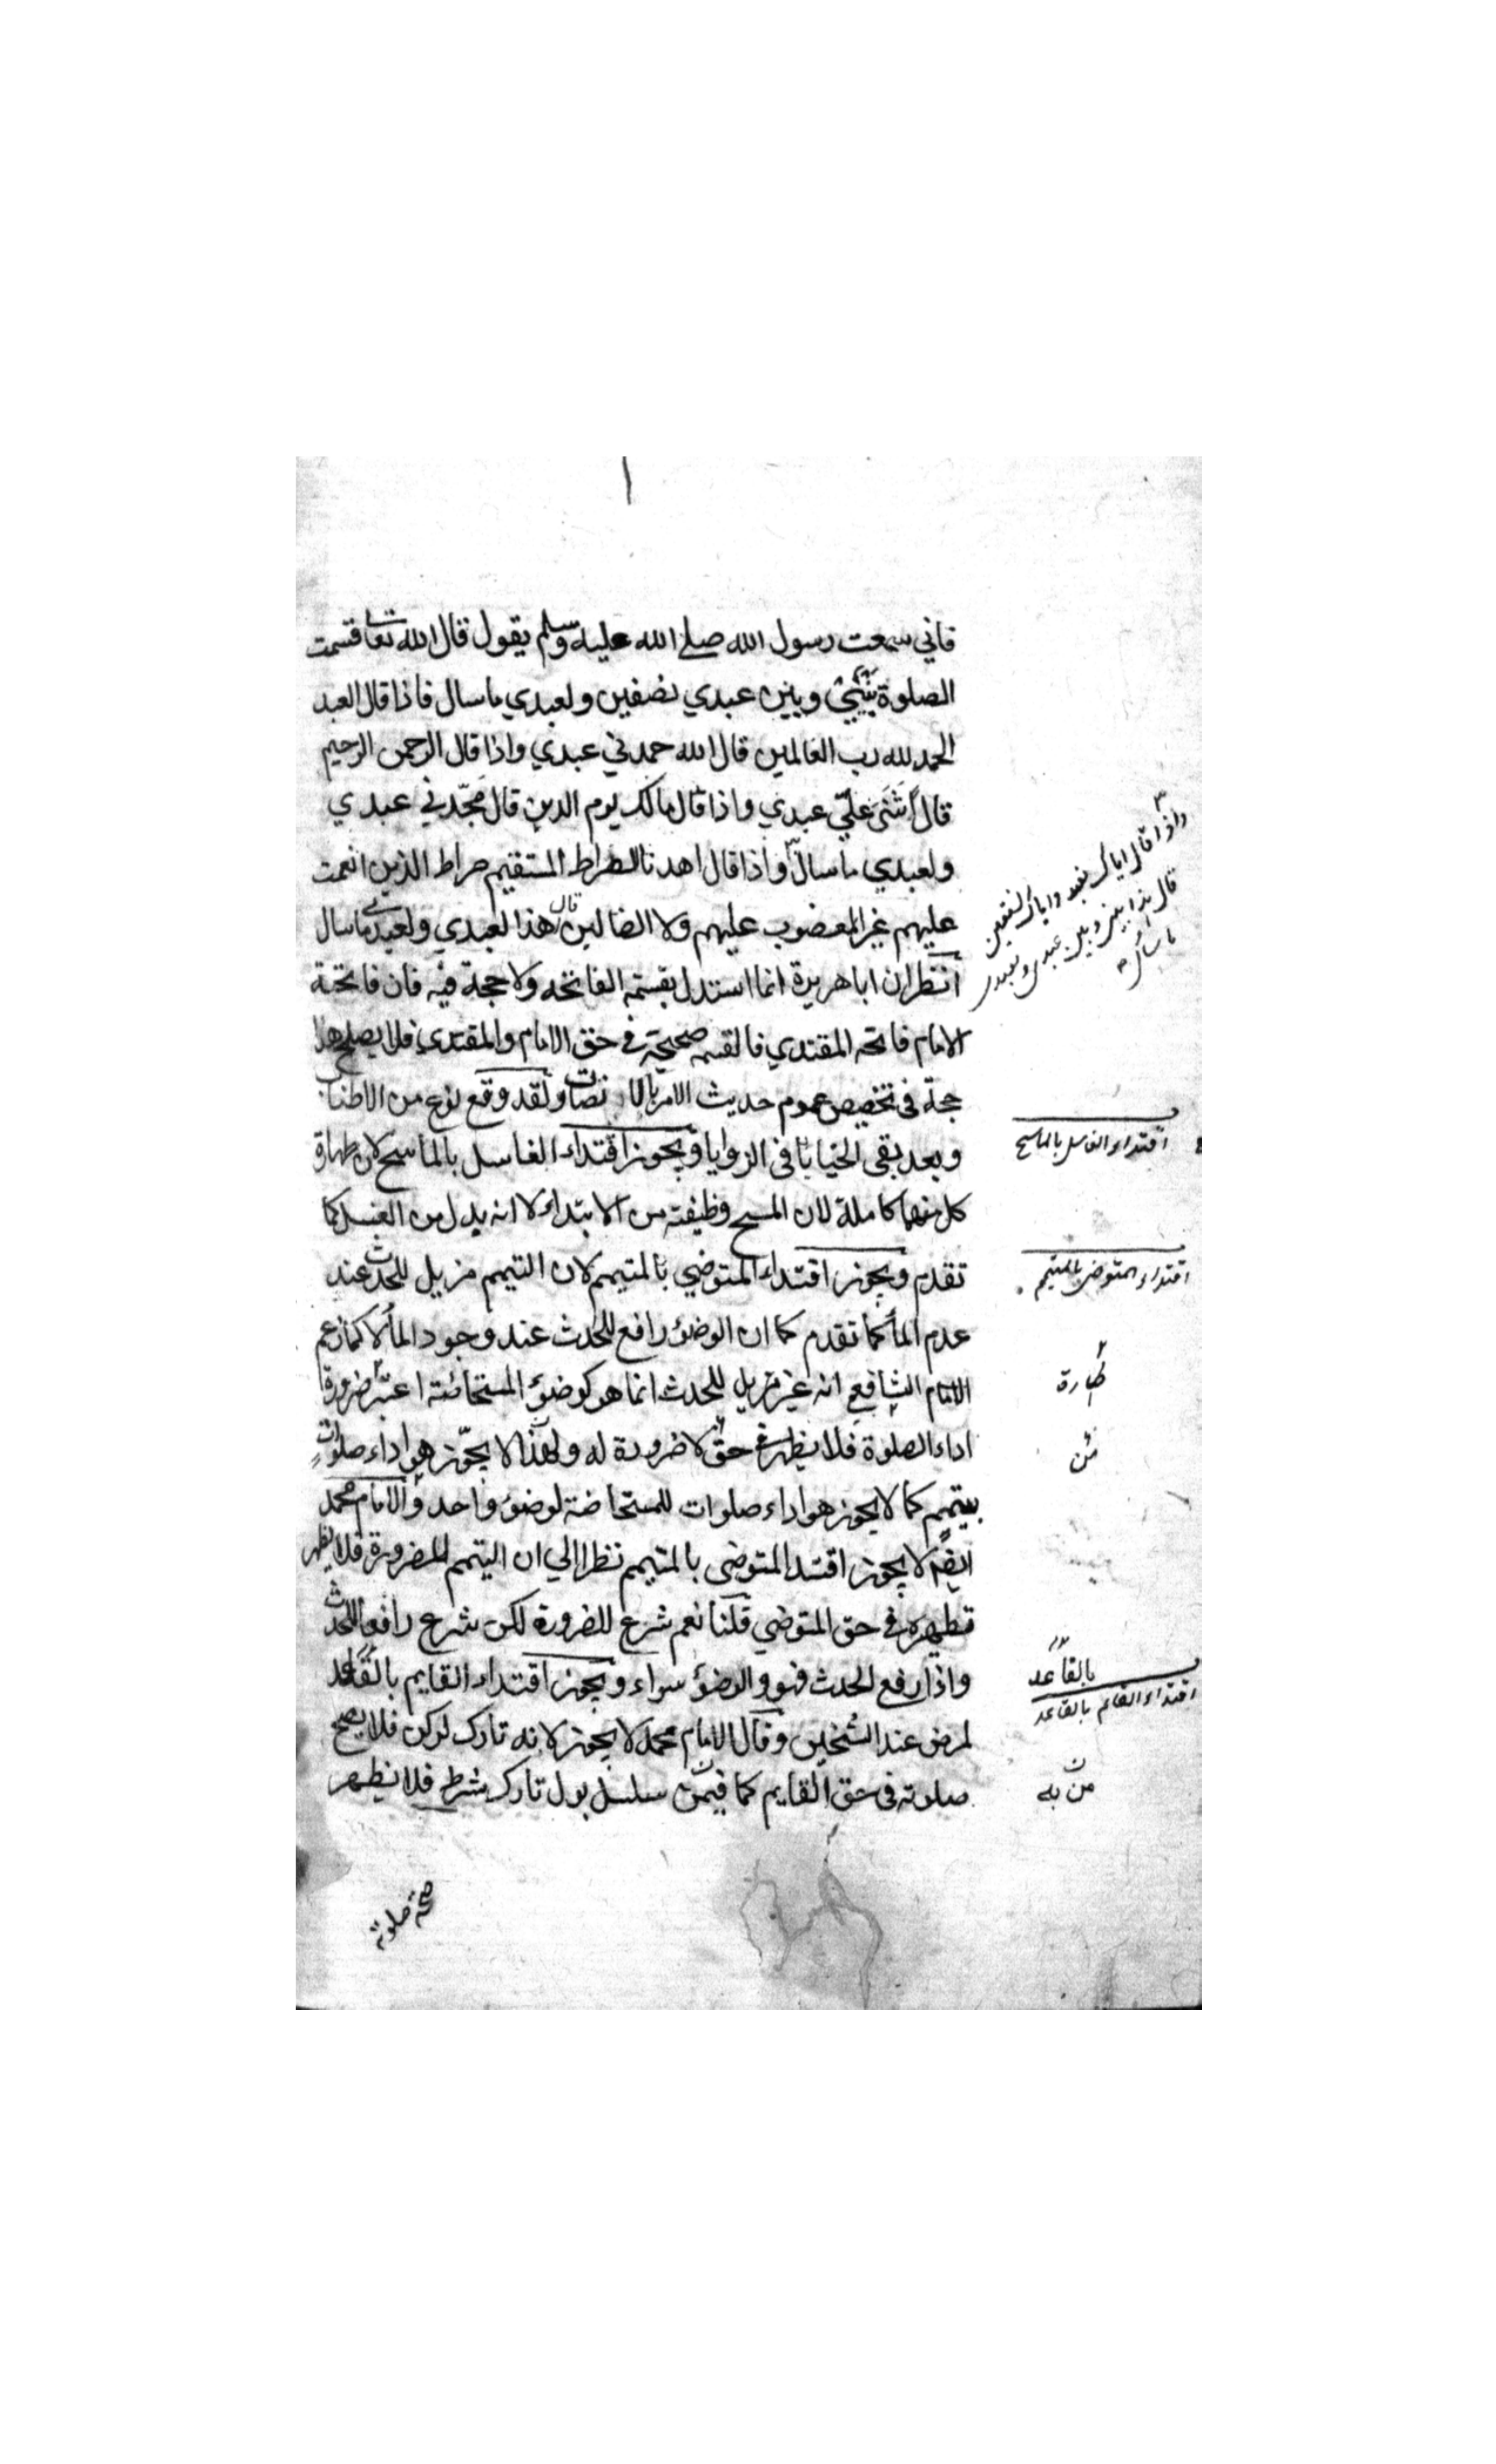 فاني سمعت رسول الله صلى الله عليه وسلم يقول قال الله تعالى قسمت
الصلوة بيني وبين عبدي نصفين ولعبدي ما سال فاذا قال العبد
الحمد لله رب العالمين قال الله حمدني عبدي واذا قال الرحمن الرحيم
قال اثنى علي عبدي واذا قال مالك يوم الدين قال مجّدني عبدي
ولعبدي ما سال واذا قال اهدنا الصراط المستقيم صراط الذين انعمت
عليهم غير المغضوب عليهم ولا الضالين قال هذا لعبدي ولعبدي ما سال
انظر ان ابا هريرة انما استدل بقسمة الفاتحه ولا حجة فيه فان فاتحة
الامام فاتحه المقتدي فالقسمه صحيحة في حق الامام والمقتدي فلا يصلح هذا
حجة في تخصيص عموم حديث الامر ولقد وقع نوع من الاطناب
وبعد بقى الخبايا في الزوايا ويجوز اقتداء الغاسل بالماسح لان طهارة
كل منهما كاملة لان المسح وظيفته من الابتداء لا انه بدل من الغسل كما
تقدم ويجوز اقتداء المتوضي بالمتيمم لان التيمم مزيل للحدث عند
عدم الماء كما تقدم كما ان الوضؤ رافع للحدث عند وجود الماء لا كما زعم
الامام الشافعي انه غير مزيل للحدث انما هو كوضؤ المستحاضة اعتبر ضرورة
اداء الصلوة فلا يظهر في حق لا ضرورة له ولهذا لا يجوّز هو اداء صلوات
بتيمم كما لا يجوز هو اداء صلوات للمستحاضة لوضؤ واحد والامام محمد
ايضا لا يجوز اقتداء المتوضى بالمتيمم نظرا الي ان التيمم للضرورة فلا يظهر
تطهيره في حق المتوضي قلنا نعم شرع للضرورة لكن شرع رافعا للحدث
واذا رفع الحدث فهو والوضؤ سواء ويجوز اقتداء القايم بالقاعد
لمرض عند الشيخين وقال الامام محمد لا يجوز لانه تارك لركن فلا يصح
صلوته في حق القايم كما فيمن سلسل بول تارك شرط فلا يظهر
صحة صلوته
واذا قال اياك نعبد واياك نستعين
قال هذا بيني وبين عبدي ولعبدي
ما سال
اقتداء الغاسل بالماسح
اقتداء المتوضي بالمتيمم
طهارة
من
بالقاعد
اقتداء القائم بالقاعد
من به